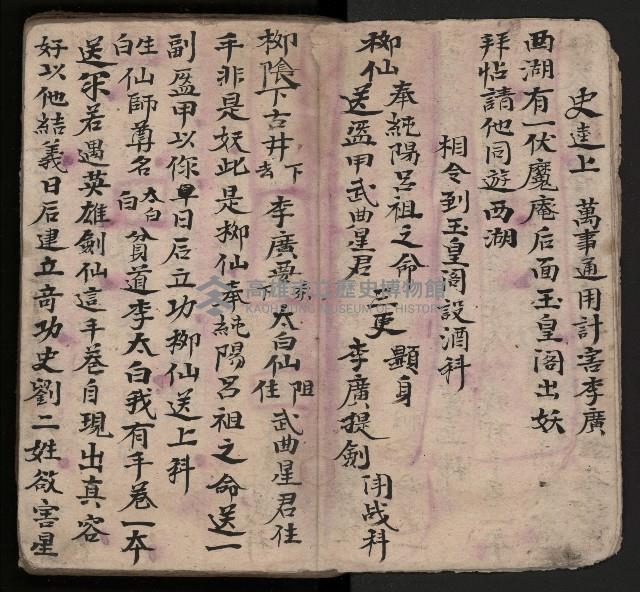 史逵上 萬事通用計害李廣
西湖有一伏魔庵后面玉皇阁出妖
拜帖請他同遊西湖
相令到玉皇阁設酒科
柳仙 奉純陽呂祖之命 三更 顕身
送盔甲武曲星君 李廣提劍 闭战科
柳陰下古井下去 李廣要 太白仙阻住 武曲星君住
手非是妖此是柳仙奉純陽呂祖之命送一
副盔甲以你早日后立功柳仙送上科
生白仙師尊名 太白白 貧道李太白我有手卷一本
送尔若遇英雄劍仙這手卷自現出真容
好以他結義日后建立奇功史劉二姓欲害星
高雄市立歷史博物館
KAOHSIUNG MUSEUM OF HISTORY